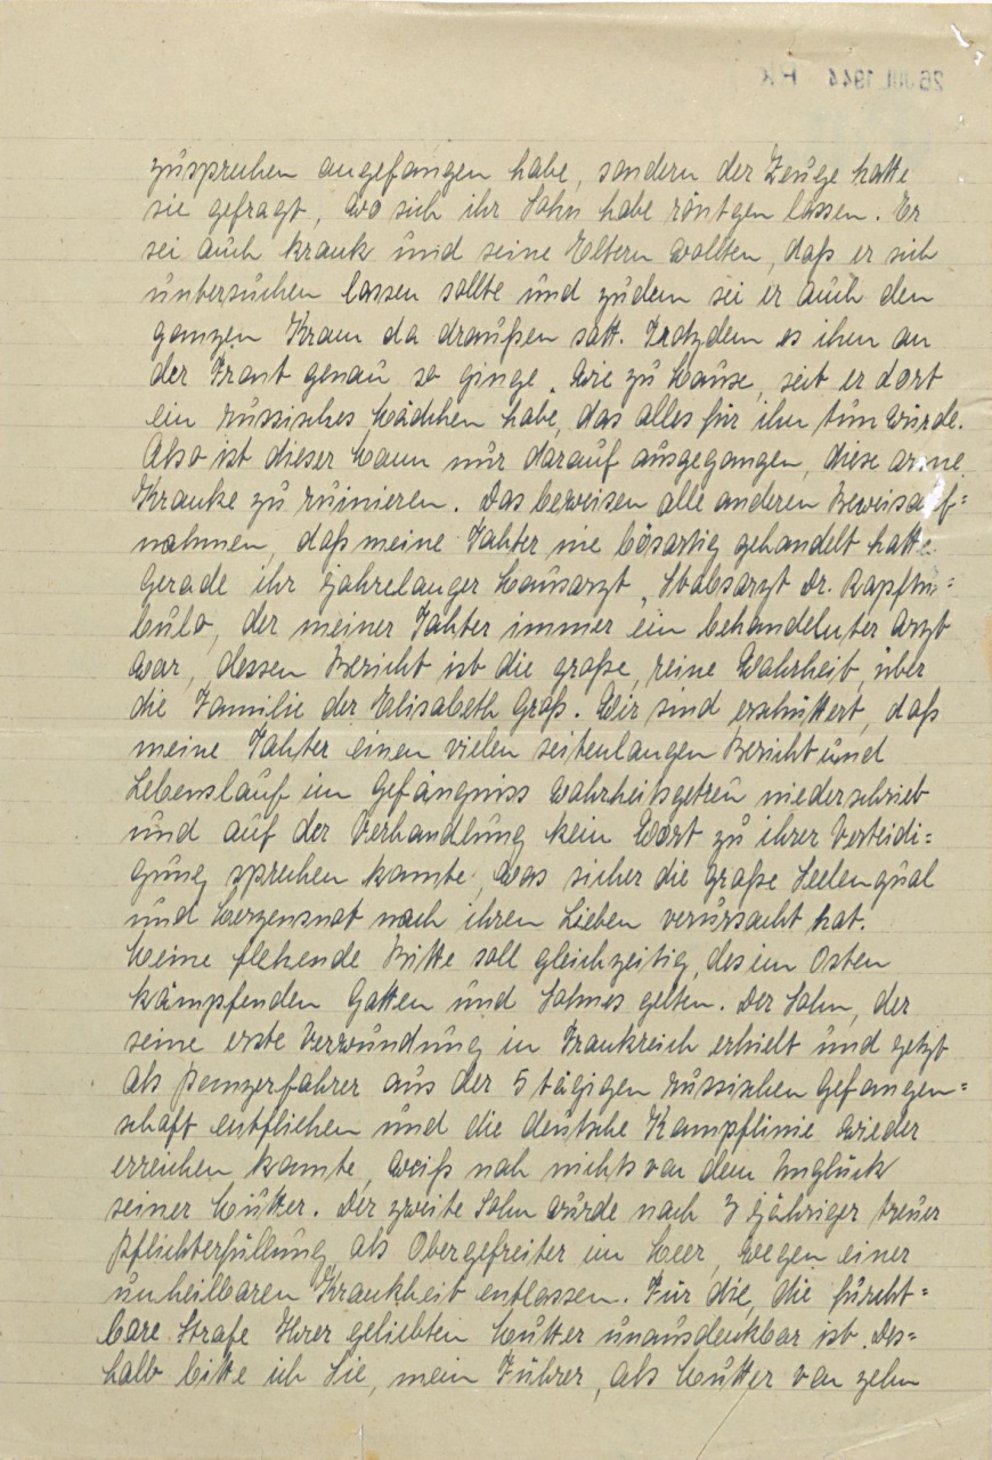 26 JUL 1944 PK
zusprechen angefangen habe, sondern der Zeuge hatte
sie gefragt, wo sich ihr Sohn habe röntgen lassen. Er
sei auch krank und seine Eltern wollten, daß er sich
untersuchen lassen sollte und zudem sei er auch den
ganzen Kram da draußen satt. Trotzdem es ihm an
der Front genau so ginge, wie zu Hause, seit er dort
ein russisches Mädchen habe, das alles für ihn tun würde.
Also ist dieser Mann nur darauf ausgegangen, diese arme
Kranke zu ruinieren. Das beweisen alle anderen Beweisauf=
nahmen, daß meine Tochter nie bösartig gehandelt hatte.
Gerade ihr jahrelanger Hausarzt, Stabsarzt Dr.
der meiner Tochter immer ein behandelnter Arzt
war, dessen Bericht ist die große, reine Wahrheit, über
die Familie der Elisabeth Groß. Wir sind erschüttert, daß
meine Tochter einen vielen seitenlangen Bericht und
Lebenslauf im Gefängniss wahrheitsgetreu niederschrieb
und auf der Verhandlung kein Wort zu ihrer Verteidi=
gung sprechen konnte, was sicher die große Seelenqual
und Herzensnot nach ihren Lieben verursacht hat.
Meine flehende Bitte soll gleichzeitig, des im Osten
kämpfenden Gatten und Sohnes gelten. Der Sohn, der
seine erste Verwundung in Frankreich erhielt und jetzt
als Panzerfahrer aus der 5 tägigen russischen Gefangen=
schaft entfliehen und die deutsche Kampflinie wieder
erreichen konnte, weiß noch nichts von dem Unglück
seiner Mutter. Der zweite Sohn wurde nach 3 jähriger treuer
Pflichterfüllung als Obergefreiter im Heer, wegen einer
unheilbaren Krankheit entlassen. Für die, die furcht=
bare Strafe Ihrer geliebten Mutter unausdenkbar ist. Des=
halb bitte ich Sie, mein Führer, als Mutter von zehn